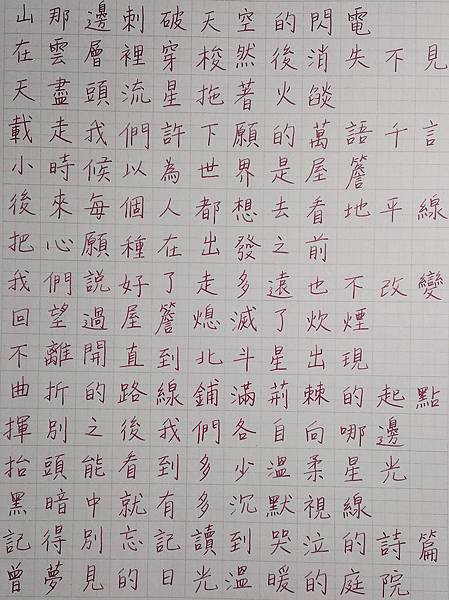 山那邊刺破天空的閃電
在雲層裡穿梭然後消失不見
天盡頭流星拖著火燄
載走我們許下願的萬語千言
小時候以為世界是屋簷
後來每個人都想去看地平線
把心願種在出發之前
我們說好了走多遠也不改變
回望過屋簷熄滅了炊煙
不離開直到北斗星出現
曲折的路線鋪滿荊棘的起點
揮別之後我們各自向哪邊
抬頭能看到多少溫柔星光
黑暗中就有多沉默視線
記得別忘記讀到哭泣的詩篇
曾夢見的日光溫暖的庭院